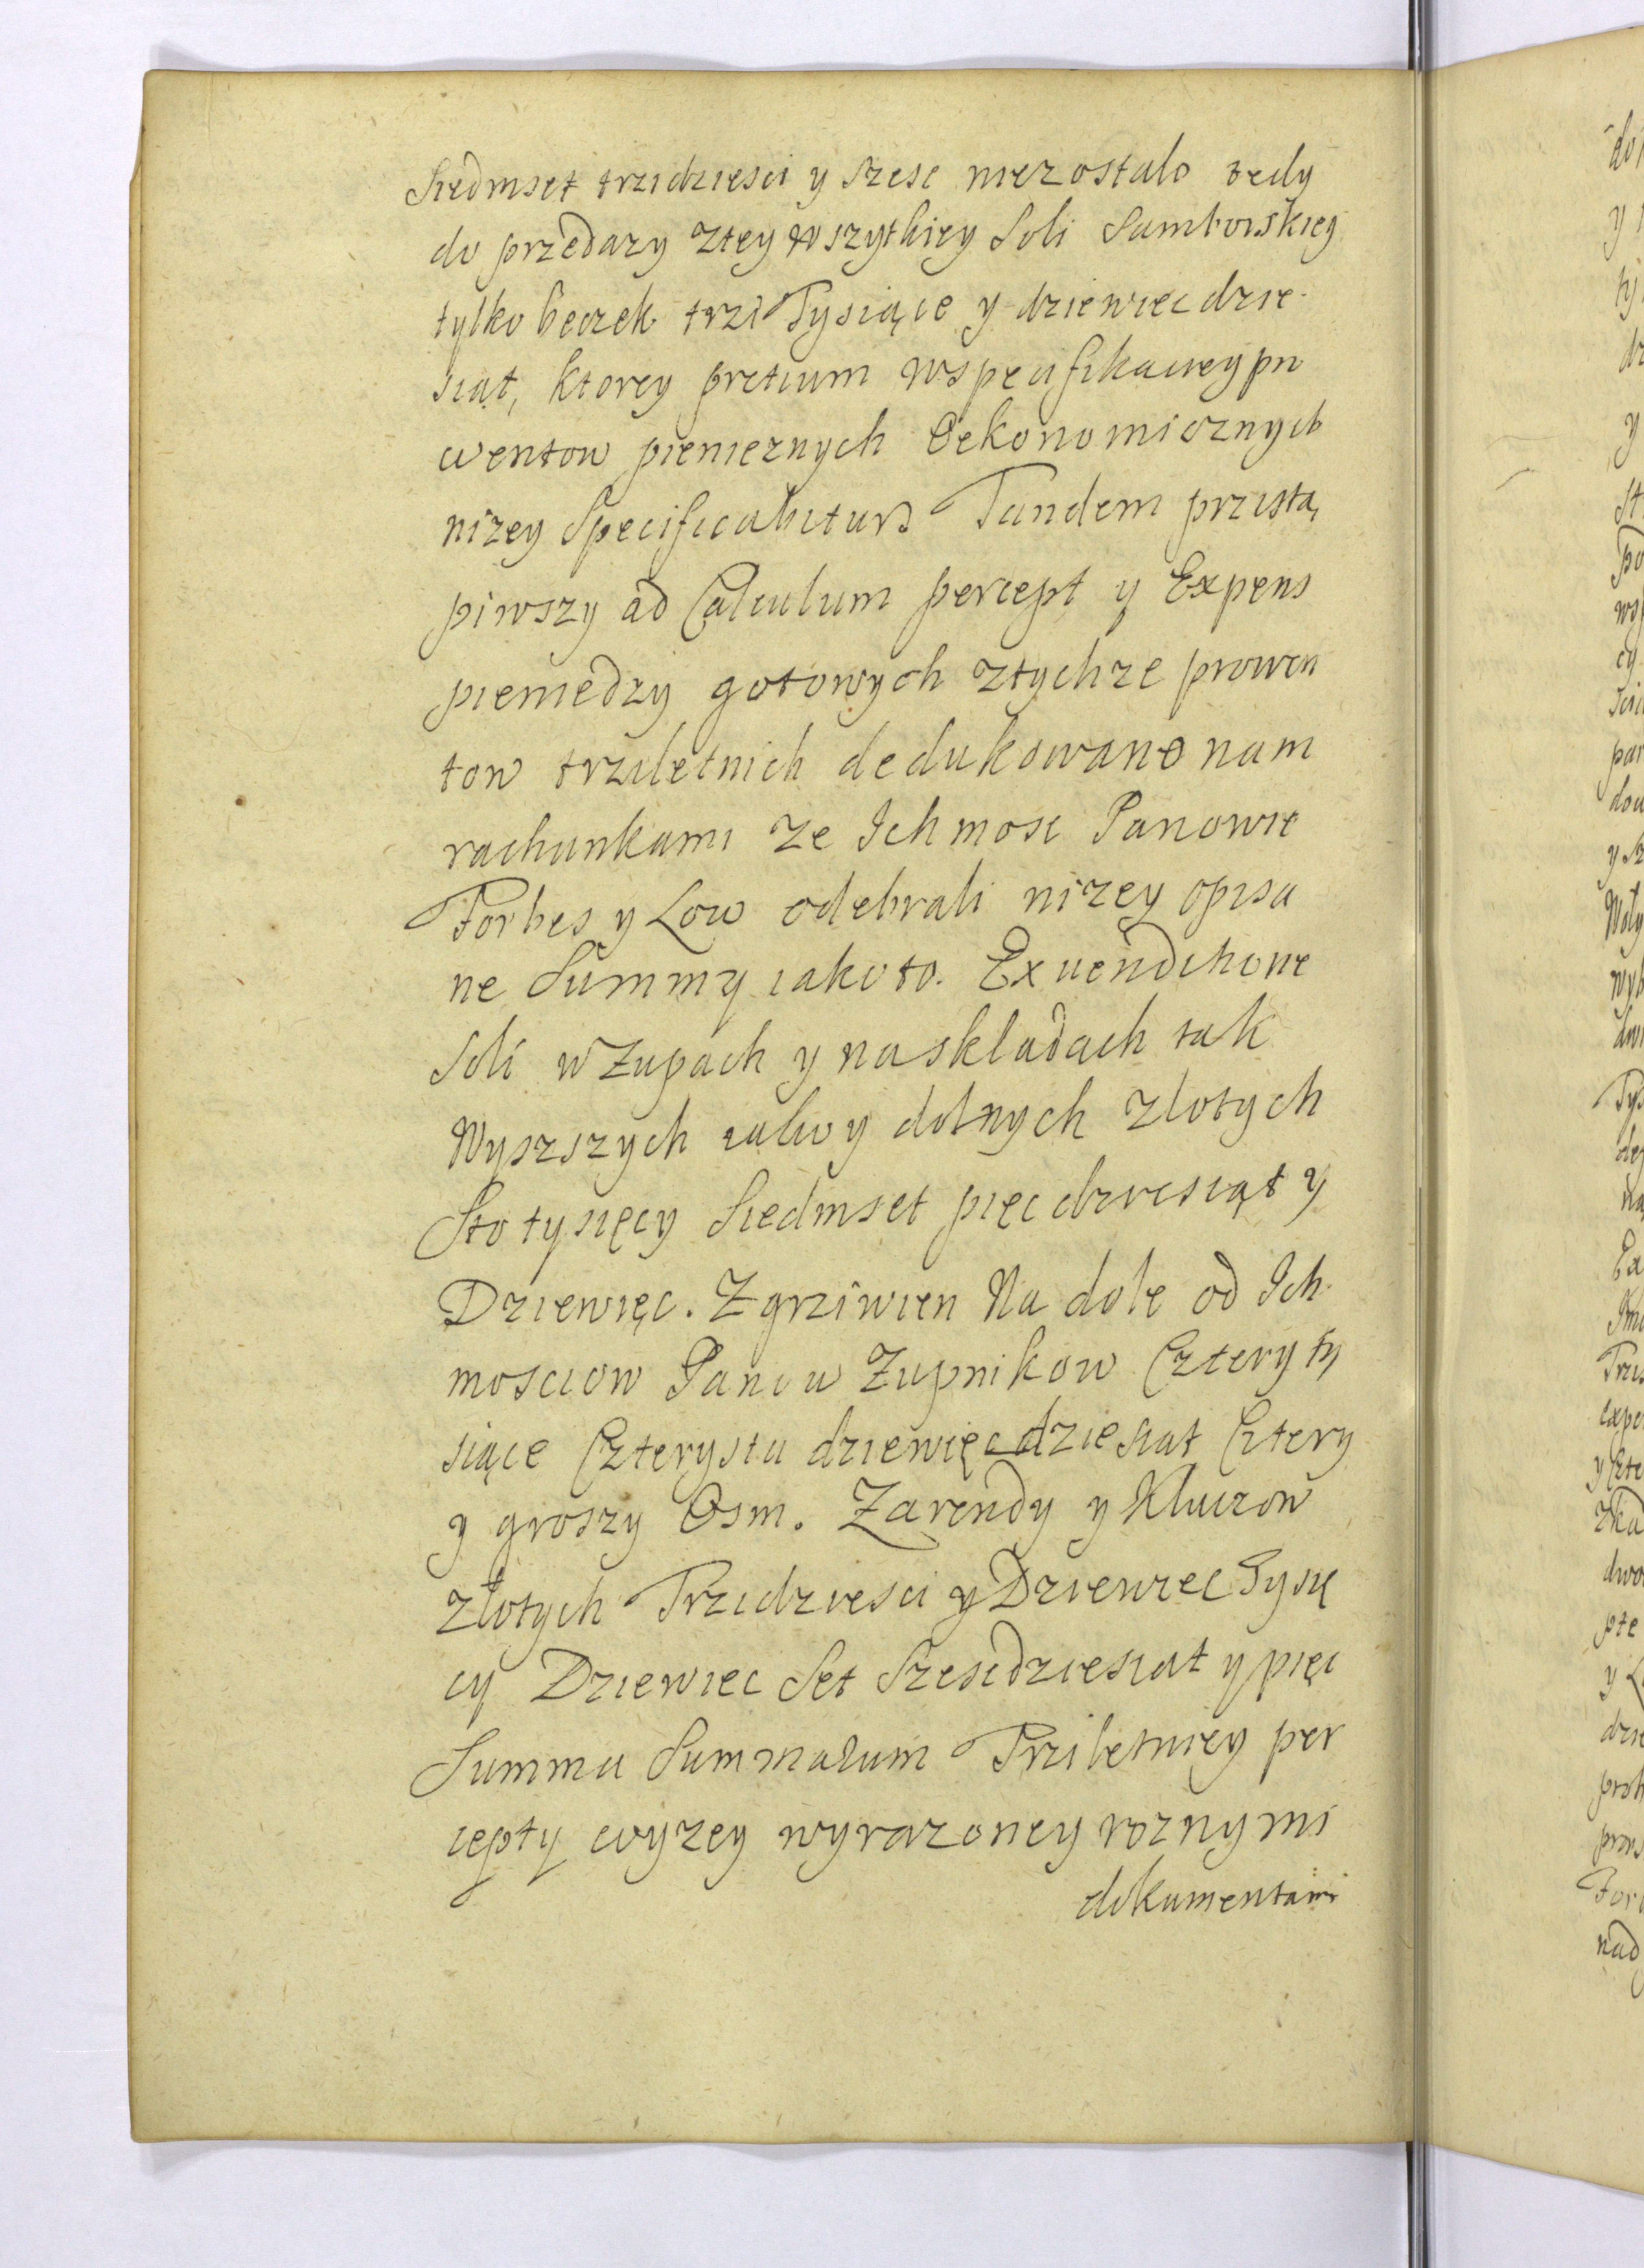 Siedmset trzidziesci y szesc niezostalo tedy
do przedazy ztey wszytkiey Soli Samborskiey
tylko beczek trzi Tysiące y dziewiec dzie-
siąt, ktorey pretium wspecifikacieypro
wentow pienieznych Oekonomicznych
nizey Specificabitur Tandem przistą
piwszy ad Calculum percept y Expens
pieniedzy gotowych ztychze prowen
tow trziletnich dedukowano nam
rachunkami ze Ichmosc Panowie
Forbes y Low odebrali nizey opisa
ne Summy iakoto. Ex uenditione
Soli w Zupach y naskladach tak
Wyszszych iako y dolnych zlotych
Sto tysięcy Siedmset pięcdziesiąt y
Dziewięc. Z grziwien Na dole od Ich-
mosciow Panow Zupnikow Cztery ty
siące Czterysta dziewięcdziesiat Cztery
y groszy Osm. Zarendy y Kluczow
złotych Trzidziesci y Dziewiec Tysię
cy Dziewiec Set Szescdziesiat y pięc
Summa Summarum Trziletniey per
cepty wyzey wyrazoney roznymi
dokumentami